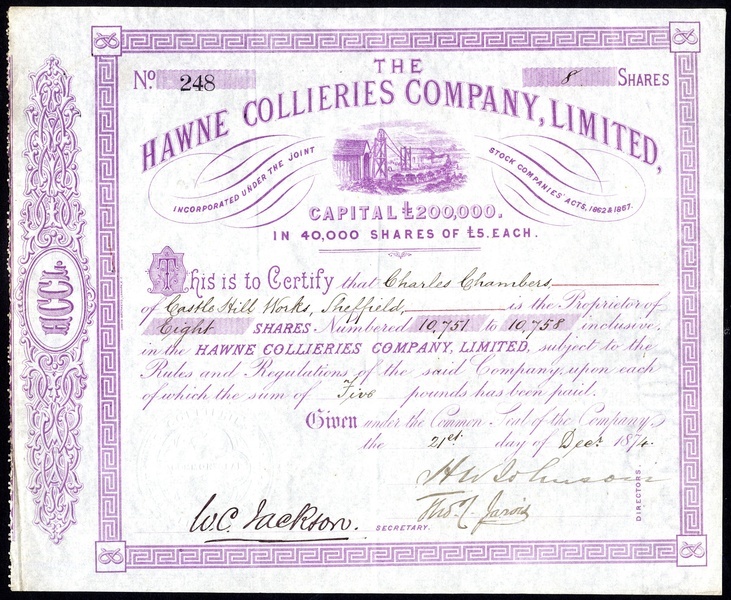 No. 248
8 SHARES
THE
HAWNE COLLIERIES COMPANY, LIMITED,
INCORPORATED UNDER THE JOINT STOCK COMPANIES' ACTS, 1862 & 1867.
CAPITAL £200,000.
IN 40,000 SHARES OF £5. EACH.
This is to Certify that Charles Chambers
of Castle Hill Works, Sheffield, is the Proprietor of
Eight SHARES Numbered 10,751 to 10,758 inclusive,
in the HAWNE COLLIERIES COMPANY, LIMITED, subject to the
Rules and Regulations of the said Company, upon each
of which the sum of Five pounds has been paid.
Given under the Common Seal of the Company,
the 21st day of Decr. 1874.
H W Johnson
Thos. C. Jarvis
DIRECTORS.
W.C. Jackson.
SECRETARY.
HCCL.